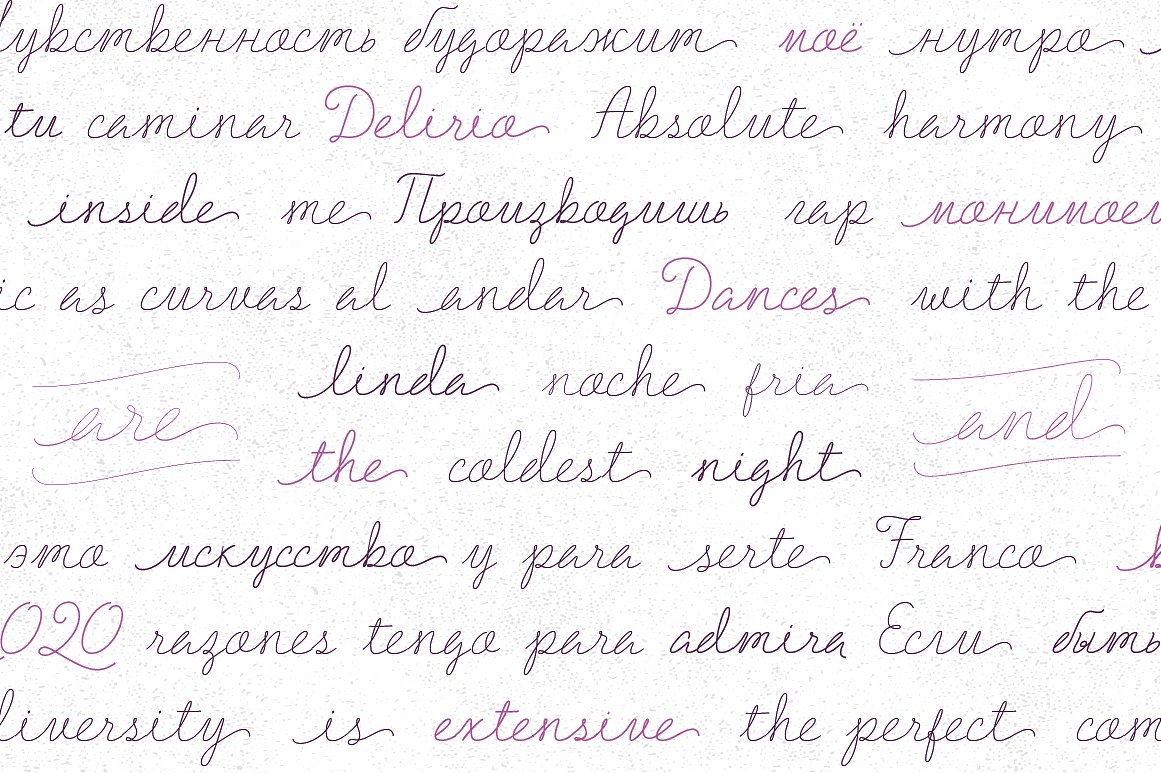 увственность будоражит моё нутро
tu caminar Delirio Absolute harmony
inside me Производишь
ic as curvas al andar Dances with the
linda noche fria
are
and
the coldest night
это искусство y para serte Franco
2020 razones tengo para admirar Если быть
iversity is extensive the perfect com